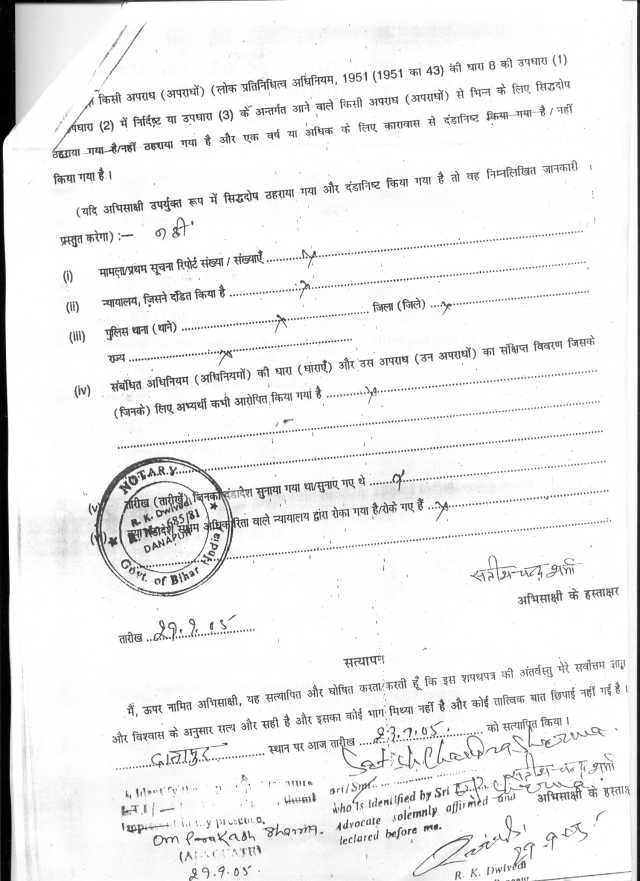 किसी अपराध (अपराधों) (लोक प्रतिनिधित्व अधिनियम, 1951 (1951 का 43) की धारा 8 की उपधारा (1)
उपधारा (2) में निर्दिष्ट या उपधारा (3) के अन्तर्गत आने वाले किसी अपराध (अपराधों) से भिन्न के लिए सिद्धदोष
ठहराया गया है/नहीं ठहराया गया है और एक वर्ष या अधिक के लिए कारावास से दंडानिष्ट किया गया है / नहीं
किया गया है ।
(यदि अभिसाक्षी उपर्युक्त रूप में सिद्धदोष ठहराया गया और दंडानिष्ट किया गया है तो वह निम्नलिखित जानकारी
प्रस्तुत करेगा) :— नहीं
(i) मामला/प्रथम सूचना रिपोर्ट संख्या / संख्याएँ
(ii) न्यायालय, जिसने दंडित किया है
(iii) पुलिस थाना (थाने) जिला (जिले)
राज्य
(iv) संबंधित अधिनियम (अधिनियमों) की धारा (धाराएँ) और उस अपराध (उन अपराधों) का संक्षिप्त विवरण जिसके
(जिनके) लिए अभ्यर्थी कभी आरोपित किया गया है
NOTARY
(v) तारीख (तारीखें) जिनका दंडादेश सुनाया गया था/सुनाए गए थे
R. K. Dwivedi
685/81
सक्षम अधिकारिता वाले न्यायालय द्वारा रोका गया है/रोके गए हैं
DANAPUR
Govt. of Bihar India
सतीश चन्द्र शर्मा
अभिसाक्षी के हस्ताक्षर
तारीख 29.9.05
सत्यापन
मैं, ऊपर नामित अभिसाक्षी, यह सत्यापित और घोषित करता/करती हूँ कि इस शपथपत्र की अंतर्वस्तु मेरे सर्वोत्तम ज्ञान
और विश्वास के अनुसार सत्य और सही है और इसका कोई भाग मिथ्या नहीं है और कोई तात्विक बात छिपाई नहीं गई है ।
दानापुर स्थान पर आज तारीख 29.9.05 को सत्यापित किया ।
Satish Chandra Sharma
सतीश चन्द्र शर्मा
अभिसाक्षी के हस्ताक्षर
L.T.I/—
in my presence.
Om Prakash Sharma
29.9.05
Sri/Smt.
who is identified by Sri
Advocate solemnly affirmed and
declared before me.
29.9.05
R. K. Dwivedi